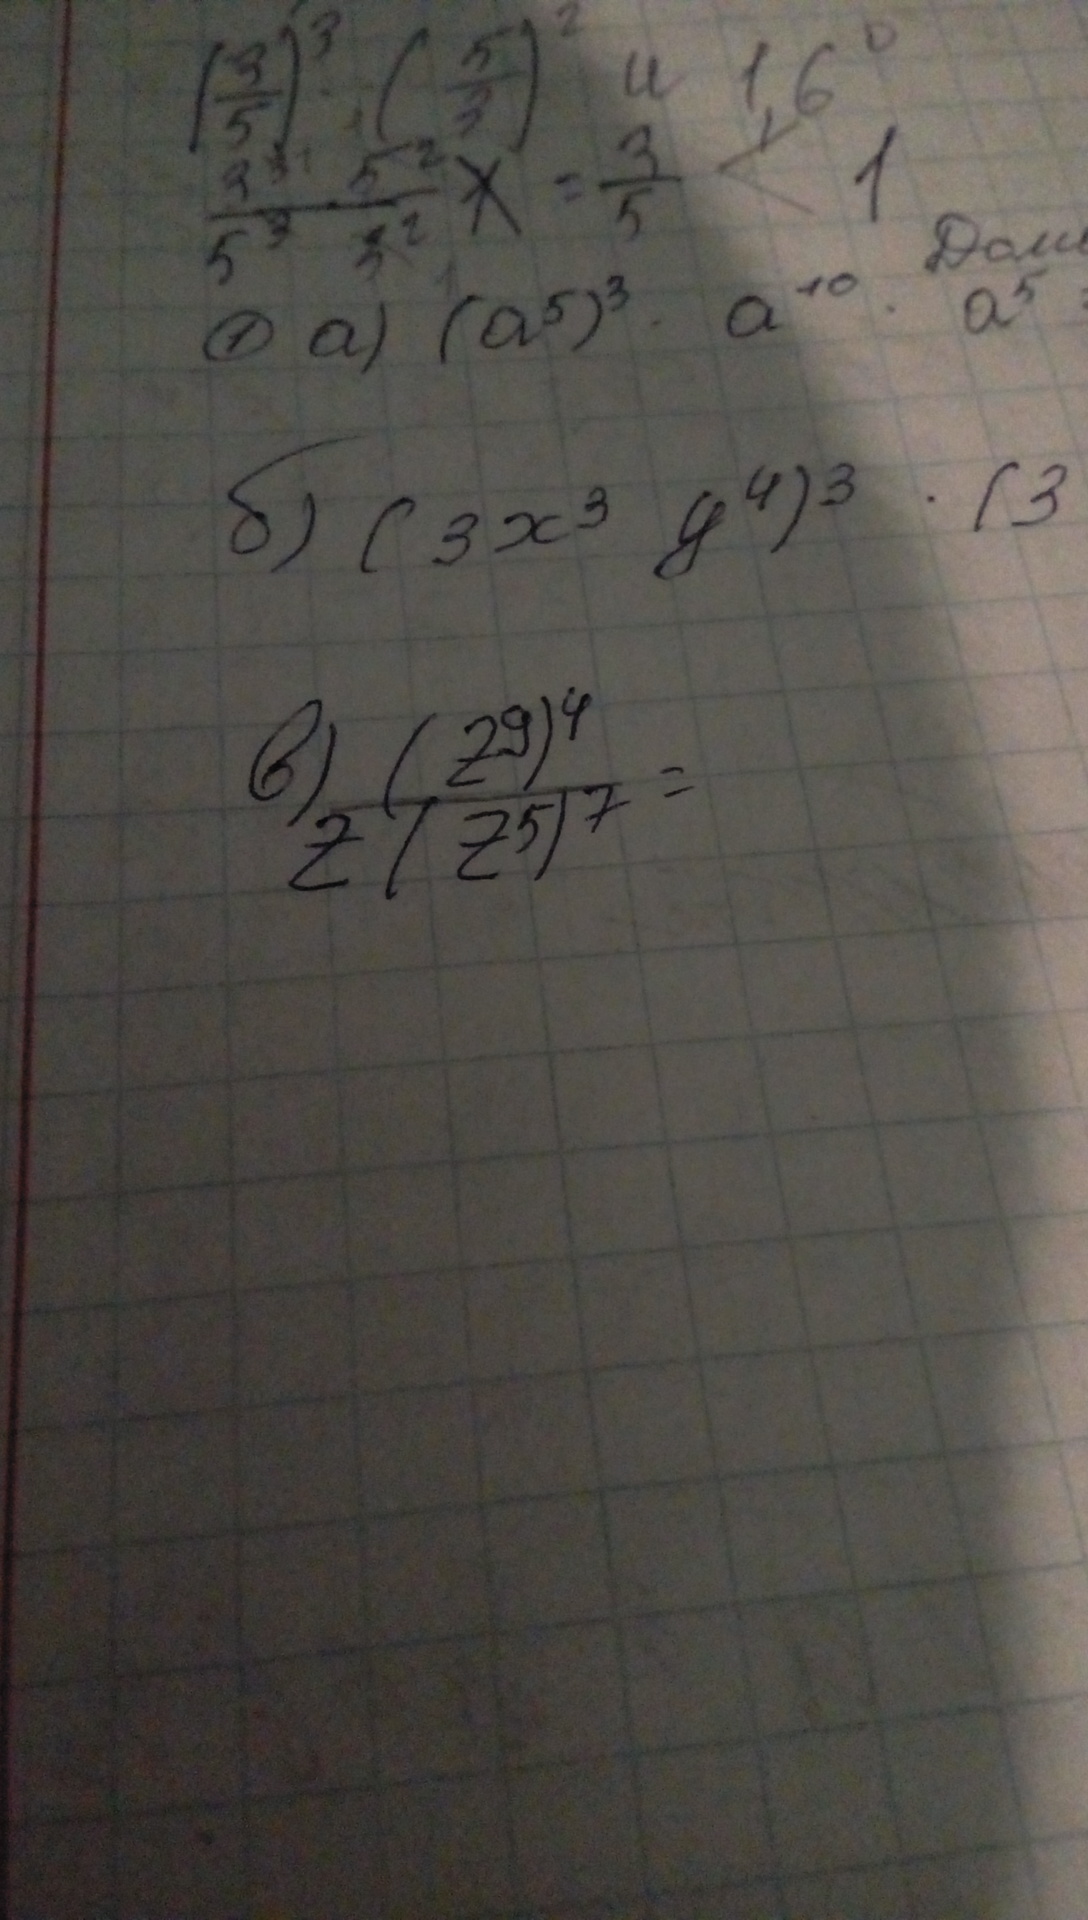 (3/5)³ · (5/3)² и 1,6⁰
3³ · 5² / 5³ 3² = 3/5 < 1
Дом
① а) (a⁵)³ · a¹⁰ · a⁵ =
б) (3x³ y⁴)³ · (3
в) (z⁹)⁴ / z(z⁵)⁷ =